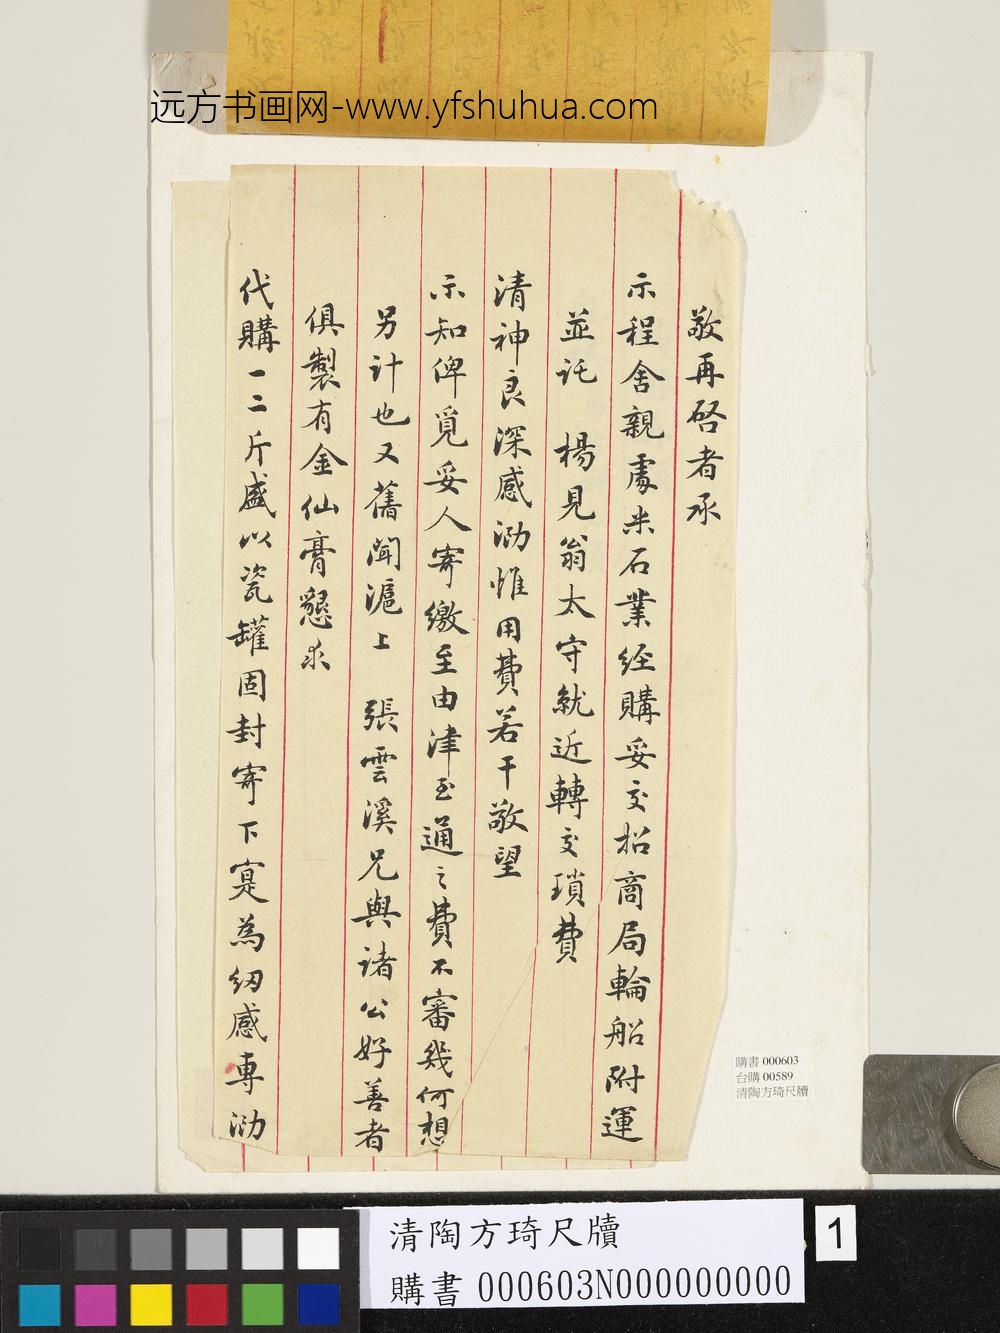 远方书画网-www.yfshuhua.com
敬再啓者承
示程舍親處米石業經購妥交招商局輪船附運
並託 楊見翁太守就近轉交瑣費
清神良深感泐惟用費若干敬望
示知俾覓妥人寄繳至由津至通之費不審幾何想
另計也又舊聞滬上 張雲溪兄與諸公好善者
俱製有金仙膏懇求
代購一二斤盛以瓷罐固封寄下寔為紉感專泐
購書 000603
台購 00589
清陶方琦尺牘
清陶方琦尺牘
購書 000603N000000000
1